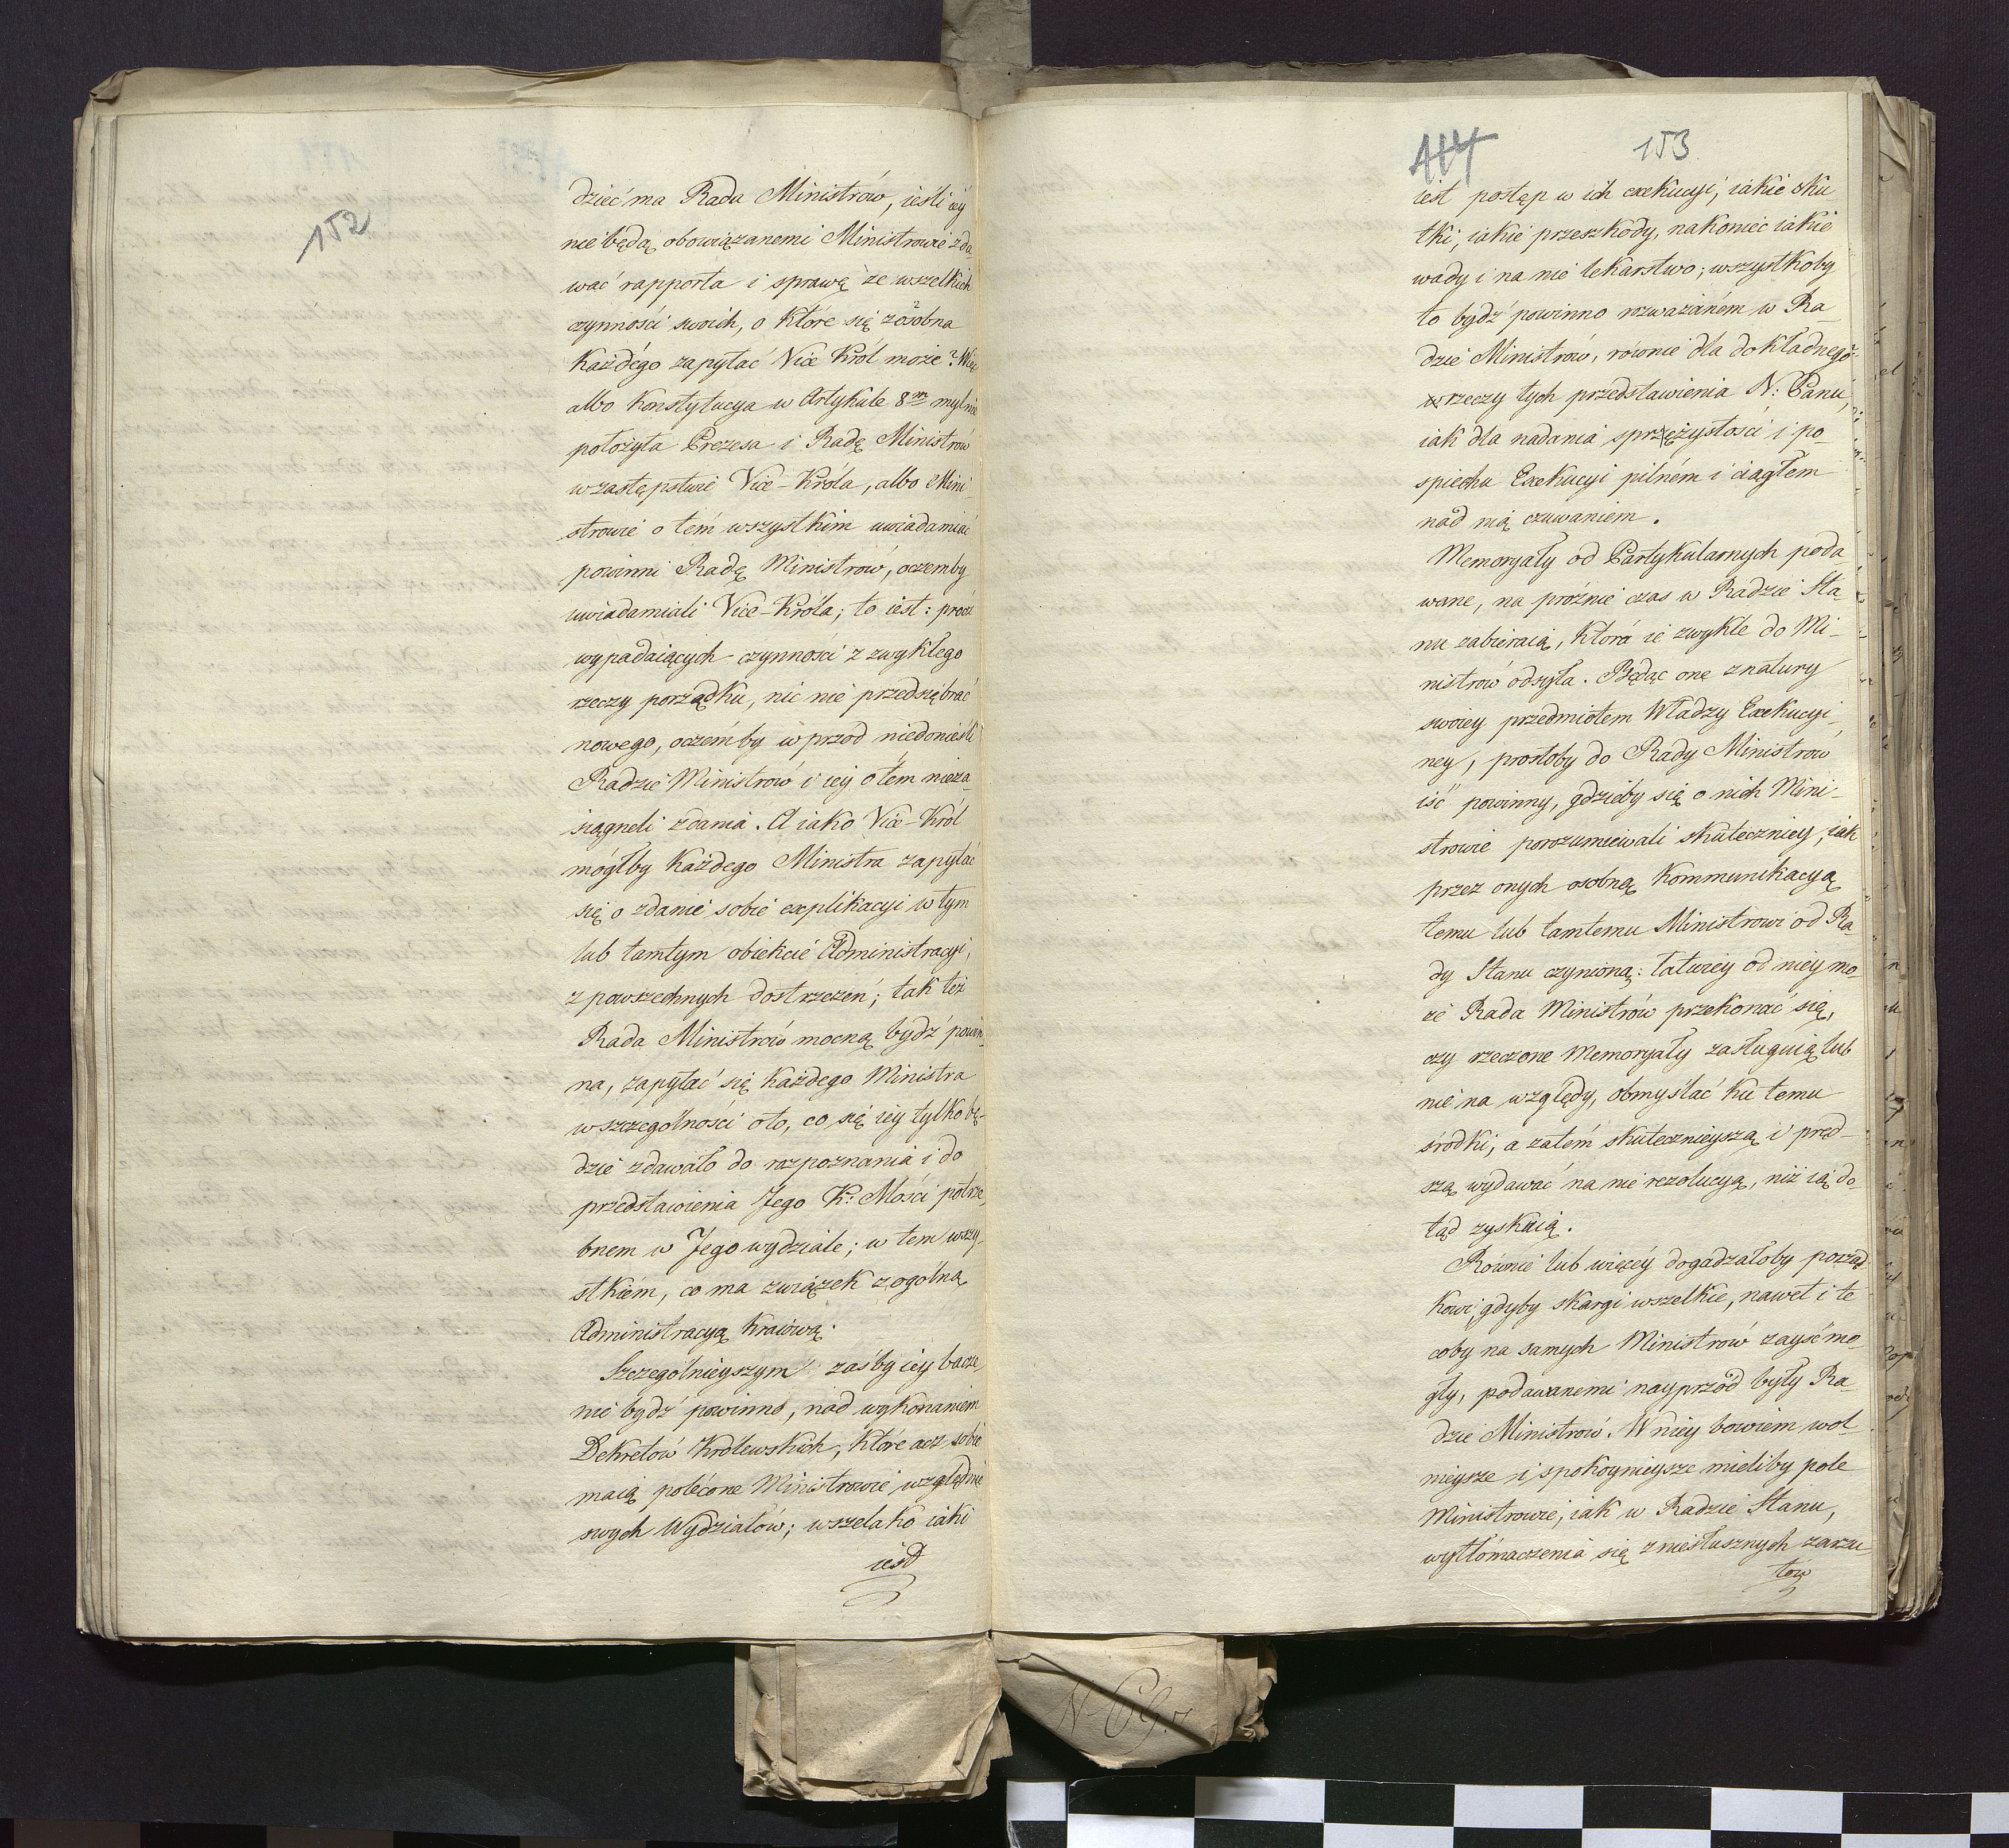 152
dzieć ma Rada Ministrów, ieśli iéy
nie będą obowiązanemi Ministrowie zda-
wać rapporta i sprawę ze wszelkich
czynności swoich, o które się zosobna
Każdego zapytać Vice Król może? Więc
albo Konstytucya w Artykule 8m mylnie
położyła Prezesa i Radę Ministrów
w zastępstwie Vice-Króla, albo Mini-
strowie o tém wszystkim uwiadamiać
powinni Radę Ministrów, oczemby
uwiadamiali Vice-Króla; to iest: procz
wypadaiących czynności z zwykłego
rzeczy porządku, nic nie przedsiębrać
nowego, oczémby wprzod niedonieśli
Radzie Ministrów i iey o tem nieza-
siągneli zdania. A iako Vice-Król
mógłby Każdego Ministra zapytać
się o zdanie sobie explikacyi w tym
lub tamtym obiekcie Administracyi,
z powszechnych dostrzezeń; tak też
Rada Ministrów mocną bydź powin-
na, zapytać się Każdego Ministra
wszczegolności oto, co się iey tylko bę-
dzie zdawało do rozpoznania i do
przedstawienia Jego K: Mości potrze-
bnem w Jego wydziale; w tem wszy-
stkiém, co ma związek z ogólną
Administracyą Kraiową.
Szczególnieyszym zaśby iey bacze-
nie bydź powinno, nad wykonaniem
Dekretów Królewskich, które acz sobie
maią polécone Ministrowie względnie
swych Wydziałów; wszelako iaki
iest
114
153
iest postęp w ich exekucyi, iakie sku-
tki, iakie przeszkody, nakoniec iakie
wady i na nie lekarstwo; wszystkoby
to bydź powinno rozważaném w Ra-
dzie Ministrów, równie dla dokładnego
rzeczy tych przedstawienia N: Panu,
iak dla nadania sprężystości i po-
spiechu Exekucyi pilném i ciągłem
nad nią czuwaniem.
Memoryały od Partykularnych poda-
wane, na próżnie czas w Radzie Sta-
nu zabieraią, która ie zwykle do Mi-
nistrów odsyła. Będąc one z natury
swoiey przedmiotem Władzy Exekucyi-
ney, prostoby do Rady Ministrów
iść powinny, gdzieby się o nich Mini-
strowie porozumiewali skuteczniey, iak
przez onych osobną Kommunikacyą
temu lub tamtemu Ministrowi od Ra-
dy Stanu czynioną: łatwiey od niey mo-
że Rada Ministrów przekonać się,
czy rzeczone Memoryały zasługuią lub
nie na względy, obmyslać ku temu
środki; a zatém skutecznieyszą i pręd-
szą wydawać na nie rezolucyą, niż ią do-
tąd zyskuią.
Równie lub więcéy dogadzałoby porząd-
kowi, gdyby skargi wszelkie, nawet i te
coby na samych Ministrów zayść mo-
gły, podawanemi nayprzód były Ra-
dzie Ministrów. W niey bowiem wol-
nieysze i spokoynieysze mieliby pole
Ministrowie, iak w Radzie Stanu,
wytłómaczenia się z niesłusznych zarzu-
tów